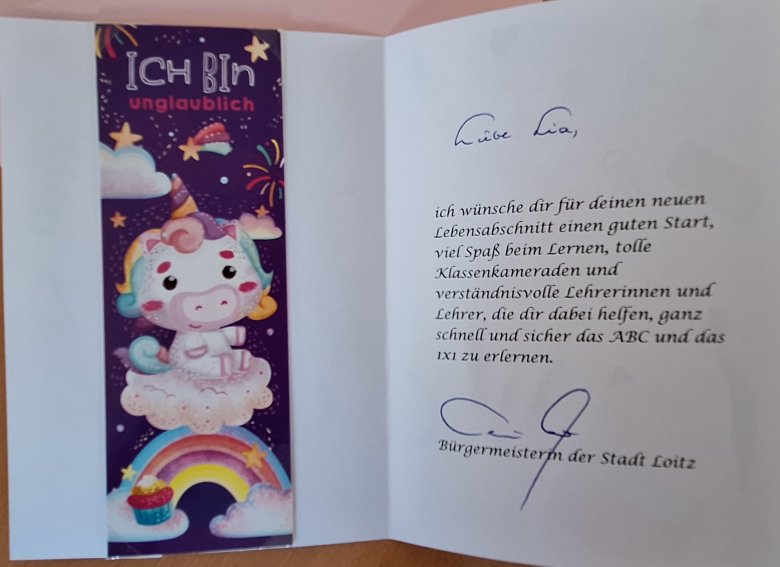 ICH BIn
unglaublich
Liebe Lia,
ich wünsche dir für deinen neuen
Lebensabschnitt einen guten Start,
viel Spaß beim Lernen, tolle
Klassenkameraden und
verständnisvolle Lehrerinnen und
Lehrer, die dir dabei helfen, ganz
schnell und sicher das ABC und das
1x1 zu erlernen.
Bürgermeisterin der Stadt Loitz